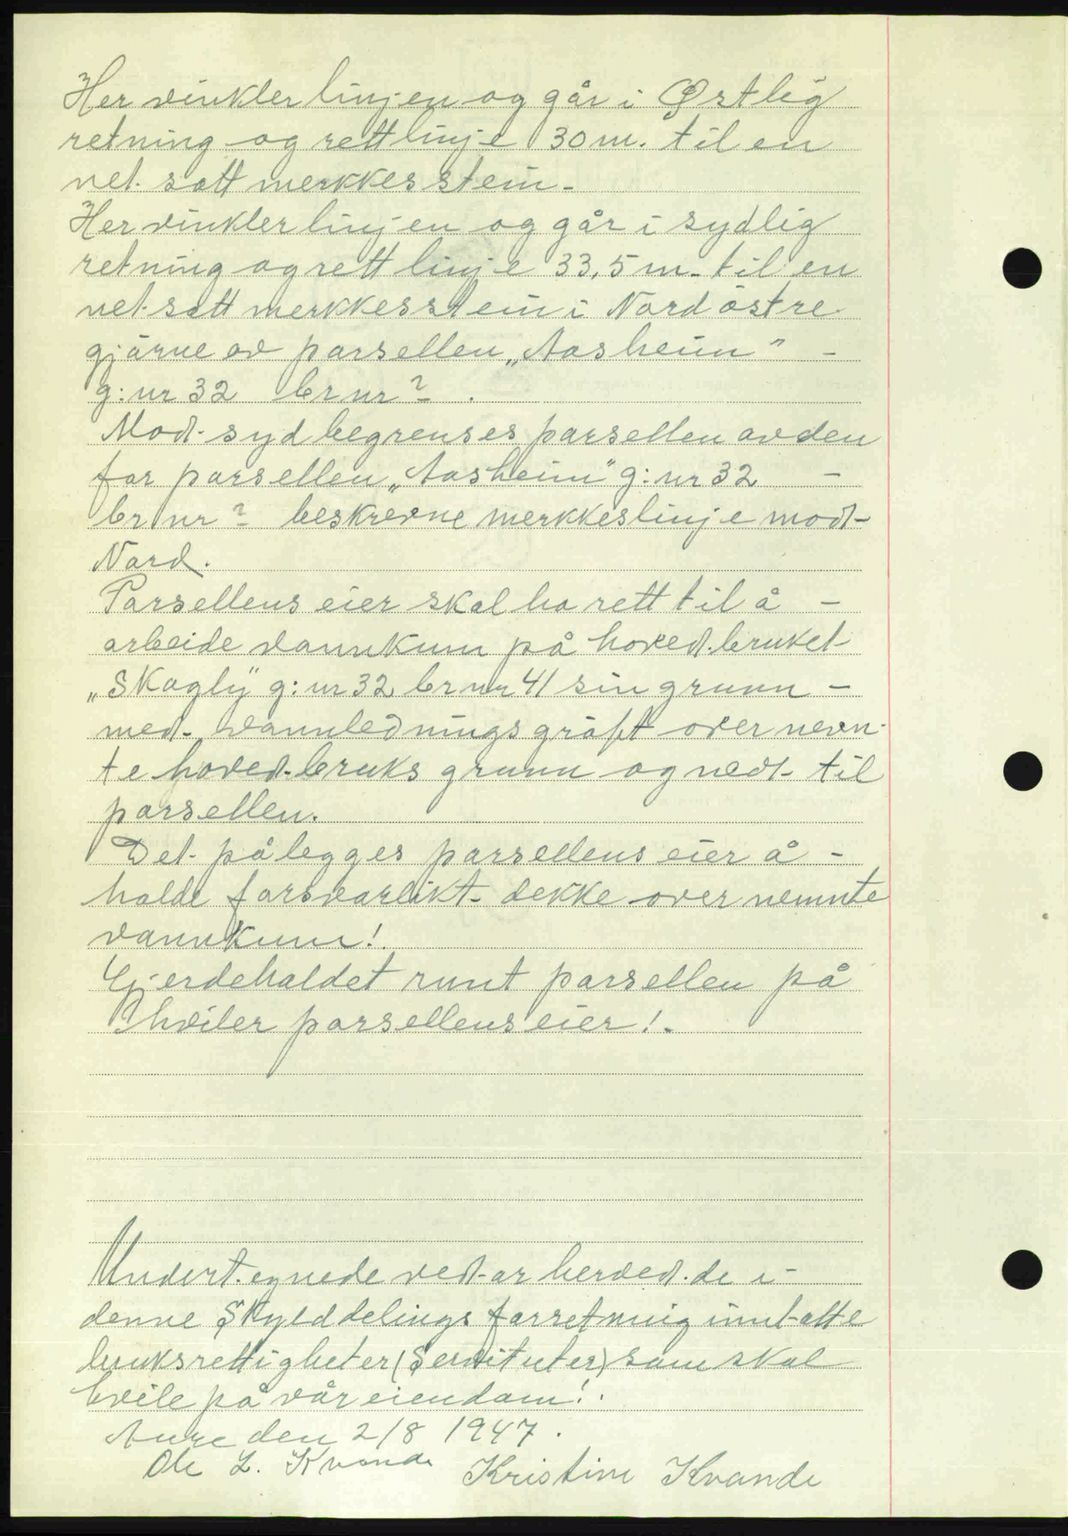 Her vinkler linjen og går i Østlig
retning og rett linje 30 m. til en
net. satt merkkesstein -
Her vinkler linjen og går i sydlig
retning og rett linje 33,5 m - til en
net. satt merkkesstein i Nordöstre
gjärne av parsellen „Aasheim" -
g: nr 32 br nr ? .
Mod. syd begrenses parsellen av den
for parsellen „Aasheim" g: nr 32 -
br nr ? beskrevne merkkeslinje mod -
Nord.
Parsellens eier skal ha rett til å -
arbeide vannkum på hoved. bruket
„Skogly" g: nr 32 br nr 41 sin grunn -
med - vannledningsgröft over nevn-
te hoved-bruks grunn og ned - til
parsellen.
Det pålegges parsellens eier å -
holde forsvarlikt - dekke over nemnte
vannkum!
Gjerdeholdet runt parsellen på
hviler parsellens eier! -
Undert. egnede ved-ar herved. de i -
denne Skylddelings forretning inntatte
bruksrettigheter (Servituter) som skal
hvile på vår eiendom!.
Aure den 2/8 1947.
Ole L. Kvande Kristine Kvande